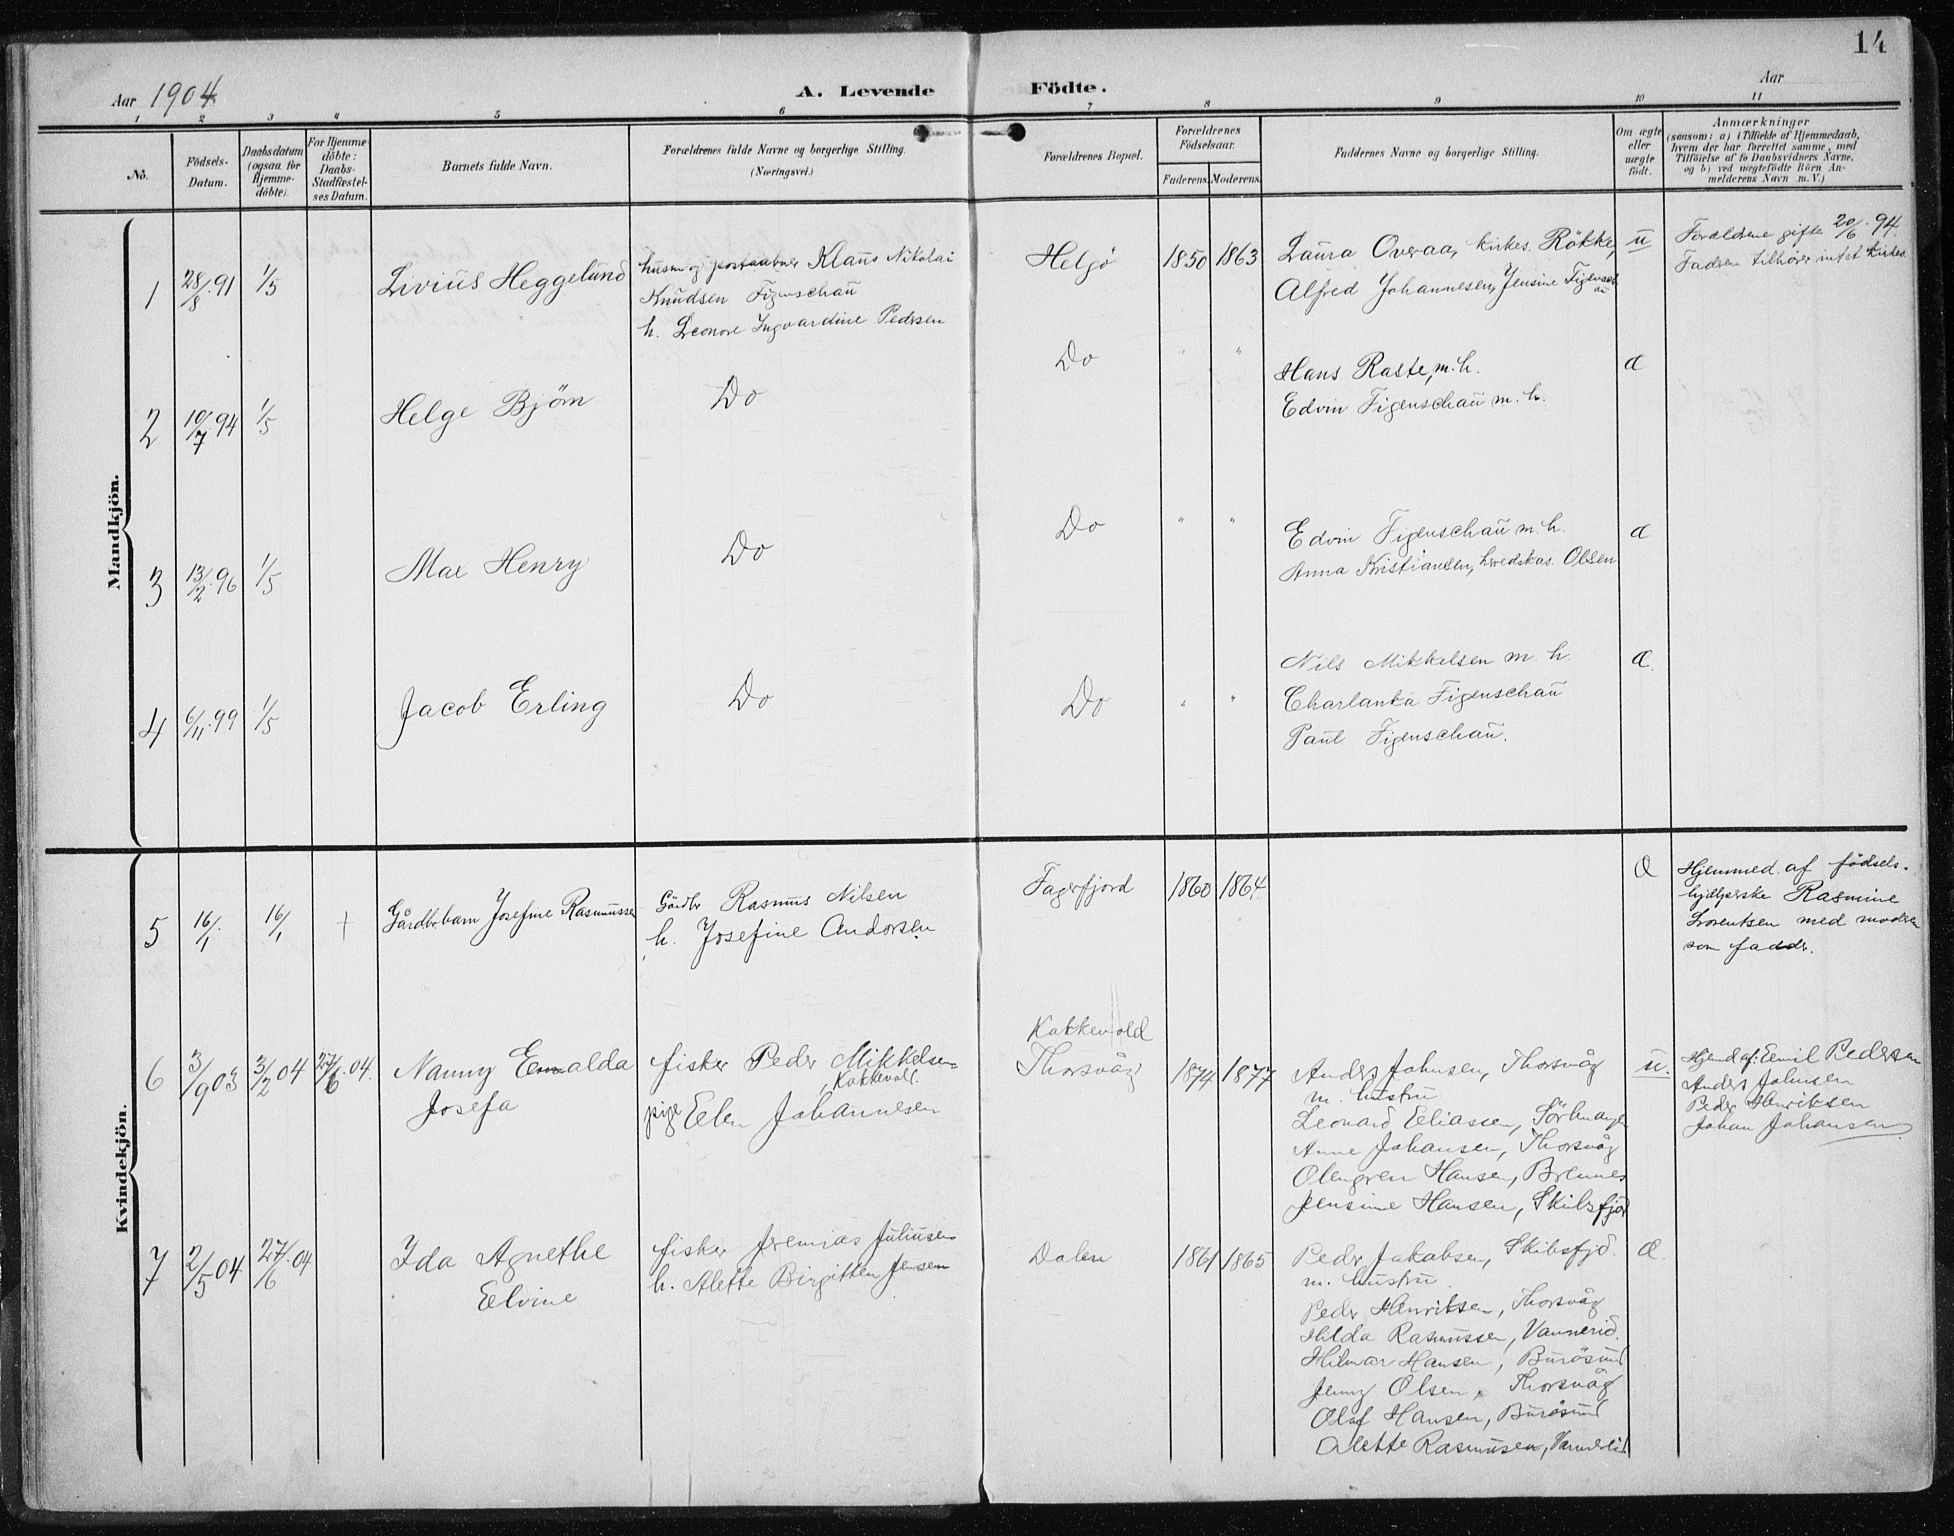 14
Aar 1904 A. Levende Födte. Aar
1 2 3 4 5 6 7 8 9 10 11
No.
Födsels-Datum.
Daabsdatum (ogsaa for Hjemmedöbte).
For Hjemmedöbte: Daabs-Stadfæstelses Datum.
Barnets fulde Navn.
Forældrenes fulde Navne og borgerlige Stilling.
(Næringsvei.)
Forældrenes Bopæl.
Forældrenes Födselsaar.
Faderens. Moderens.
Faddernes Navne og borgerlige Stilling.
Om ægte eller uægte födt.
Anmærkninger
(saasom: a) i Tilfælde af Hjemmedaab,
hvem der har forrettet samme, med
Tilföielse af to Daabsvidners Navne,
og b) ved uægtefödte Börn An-
melderens Navn m. V.)
Mandkjön.
1 28/8 91 1/5 Livius Heggelund
husm og postaabner Klaus Nikolai
Knudsen Figenschau
h. Leonore Ingvardine Pedersen
Helgö 1850 1863
Laura Overaa, kirkes. Rökke,
Alfred Johannesen, Jensine Figenschau
u
Forældrene gifte 20/6 94.
Faderen tilhörer intet kirkes
2 10/7 94 1/5 Helge Björn Do Do " "
Hans Raste, m. h.
Edvin Figenschau m. h.
æ
3 13/2 96 1/5 Max Henry Do Do " "
Edvin Figenschau m. h.
Anna Kristiansen, Olsen
æ
4 6/11 99 1/5 Jacob Erling Do Do " "
Nils Mikkelsen m. h.
Charlanka Figenschau
Paul Figenschau.
æ.
Kvindekjön.
5 16/1 16/1 + Gårdbr.barn Josefine Rasmussen
Gårdbr Rasmus Nilsen
h. Josefine Andorsen
Fagerfjord 1860 1864
Æ
Hjemmed. af födsels-
hjælperske Rasmine
Lorentsen med moderen
som fadder.
6 3/9 03 3/2 04 27/6 04. Nanny Emalda
Josefa
fisker Peder Mikkelsen
Kakkevold.
pige Ellen Johannesen
Kakkevold
Thorsvåg 1874 1877
Anders Johnsen, Thorsvåg
m. hustru
Leonard Eliassen,
Anne Johansen, Thorsvåg
Olengren Hansen, Brennes
Jensine Hansen, Skibsfjord
u.
Hjemd af: Emil Pedersen
Anders Johnsen
Peder Henriksen
Johan Johansen
7 2/5 04 27/6 04 Ida Agnethe
Elvine
fisker Jeremias Juliusen
h. Alette Birgitten Jensen
Dalen 1861 1865
Peder Jakobsen, Skibsfjd.
m. hustru
Peder Henriksen, Thorsvåg
Hilda Rasmussen, Vannereid.
Hilmar Hansen, Burösund
Jenny Olsen, Thorsvåg
Olaf Hansen, Burösund
Alette Rasmussen, Vannereid.
Æ